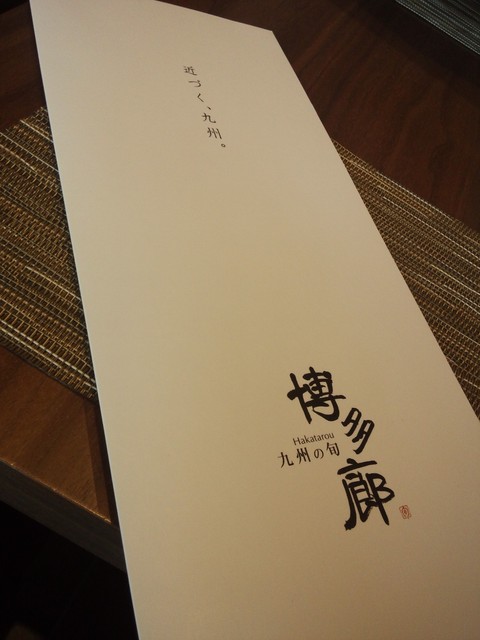 近づく、九州。
博多廊
Hakatarou
九州の旬